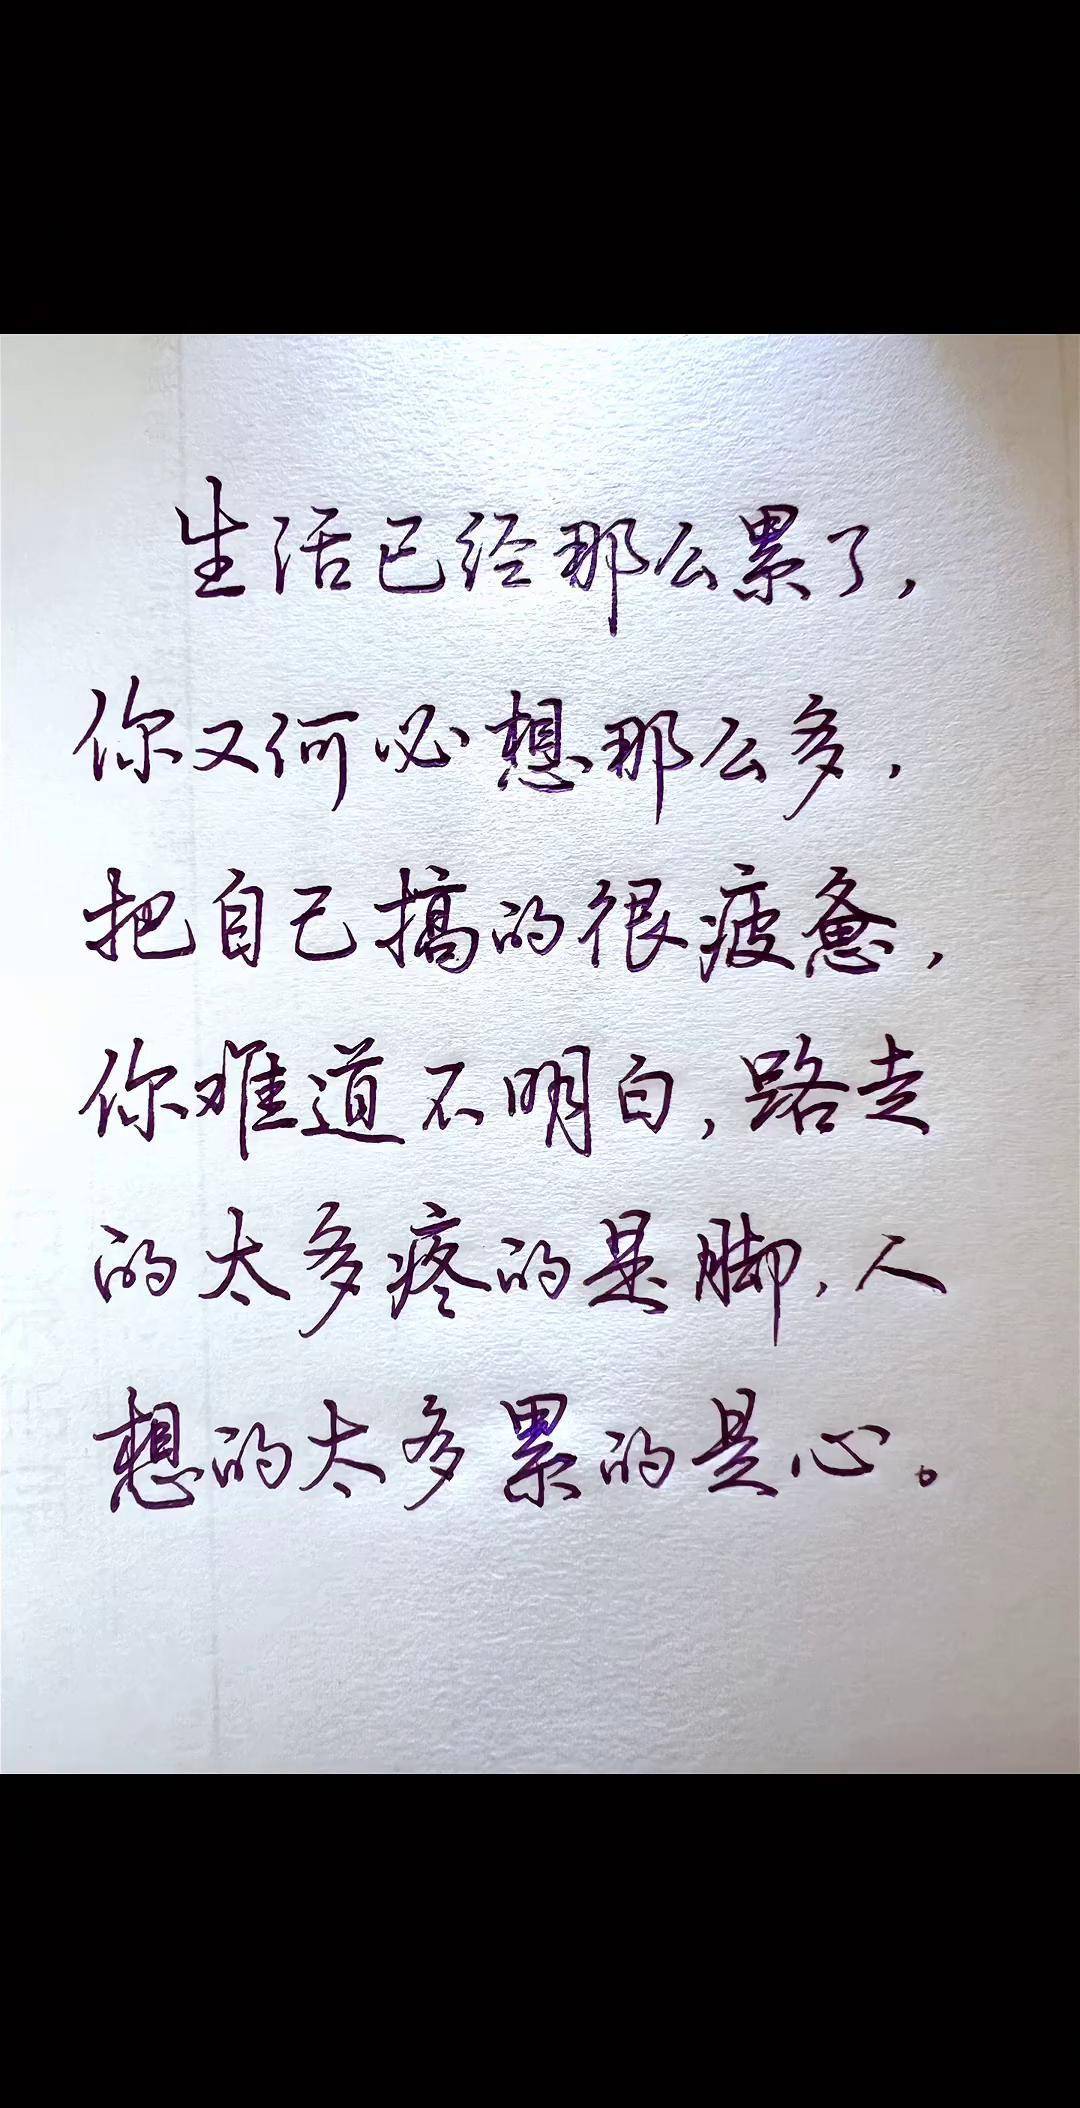 生活已经那么累了，
你又何必想那么多，
把自己搞的很疲惫，
你难道不明白，路走
的太多疼的是脚，人
想的太多累的是心。